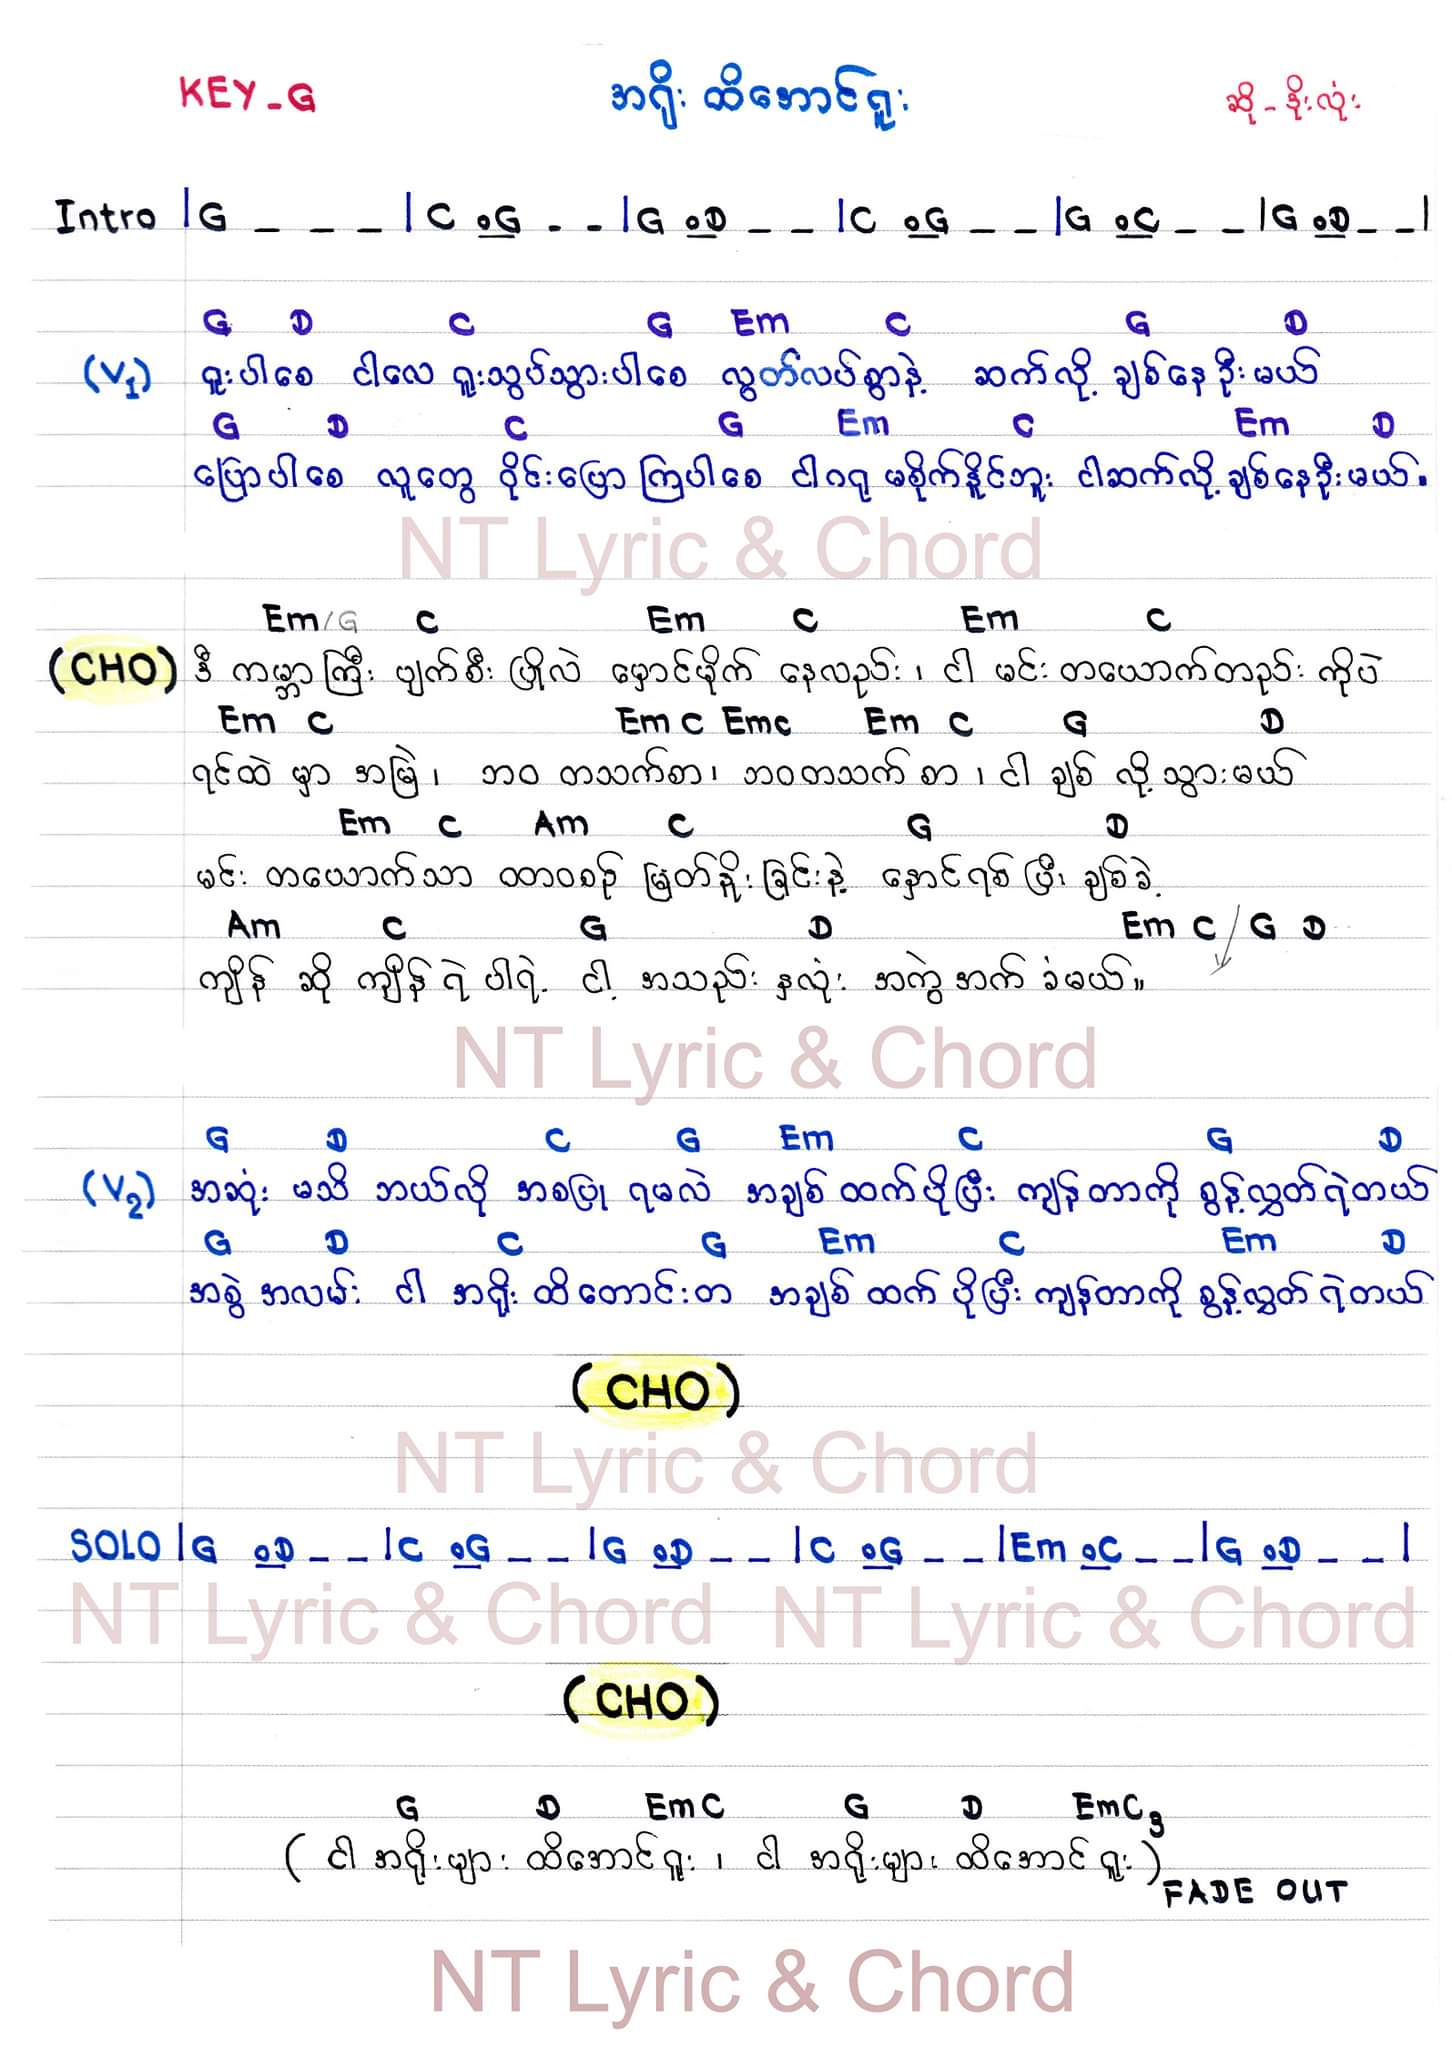 KEY - G
အရိုး ထိအောင်ရူး
ဆို - နိုးလုံး
Intro |G _ _ _ |C oG - - |G oD _ _ |C oG _ _ |G oC _ _ |G oD _ _ |
G D C G Em C G D
(V1) ရူးပါစေ ငါလေ ရူးသွပ်သွားပါစေ လွတ်လပ်စွာနဲ့ ဆက်လို့ ချစ်နေဦးမယ်
G D C G Em C Em D
ပြောပါစေ လူတွေ ဝိုင်းပြောကြပါစေ ငါဂရု မစိုက်နိူင်ဘူး ငါဆက်လို့ ချစ်နေဦးမယ်.
NT Lyric & Chord
Em/G C Em C Em C
(CHO) ဒီ ကမ္ဘာကြီး ပျက်စီး ပြိုလဲ မှောင်မိုက် နေလည်း၊ ငါ မင်း တယောက်တည်း ကိုပဲ
Em C Em C Emc Em C G D
ရင်ထဲ မှာ အမြဲ၊ ဘဝ တသက်စာ၊ ဘဝတသက်စာ၊ ငါ ချစ် လို့သွားမယ်
Em C Am C G D
မင်း တယောက်သာ ထာဝစဉ် မြတ်နိုးခြင်းနဲ့ နှောင်ရစ်ပြီး ချစ်ခဲ့
Am C G D Em C / G D
ကျိန် ဆို ကျိန်ရဲ ပါရဲ့ ငါ့ အသည်းနှလုံး အကွဲအက် ခံမယ်။
NT Lyric & Chord
G D C G Em C G D
(V2) အဆုံး မသိ ဘယ်လို အစပြု ရမလဲ အချစ် ထက်ပိုပြီး ကျန်တာကို စွန့်လွှတ်ရဲတယ်
G D C G Em C Em D
အစွဲ အလမ်း ငါ အရိုး ထိတောင်းတ အချစ် ထက် ပိုပြီး ကျန်တာကို စွန့်လွှတ်ရဲတယ်
(CHO)
NT Lyric & Chord
SOLO |G oD _ _ |C oG _ _ |G oD _ _ |C oG _ _ |Em oC _ _ |G oD _ _ |
NT Lyric & Chord NT Lyric & Chord
(CHO)
G D EmC G D EmC
( ငါ အရိုးများ ထိအောင်ရူး ၊ ငါ အရိုးများ ထိအောင်ရူး )
FADE OUT
NT Lyric & Chord